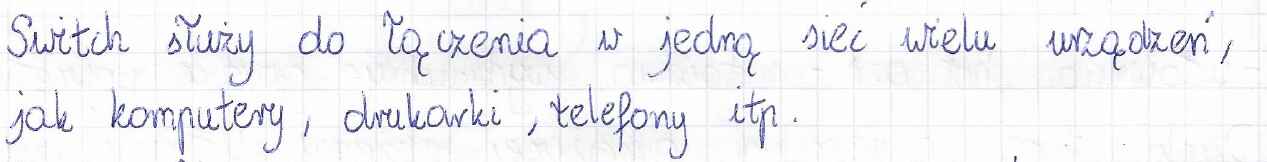 Switch służy do łączenia w jedną sieć wielu urządzeń,
jak komputery, drukarki, telefony itp.